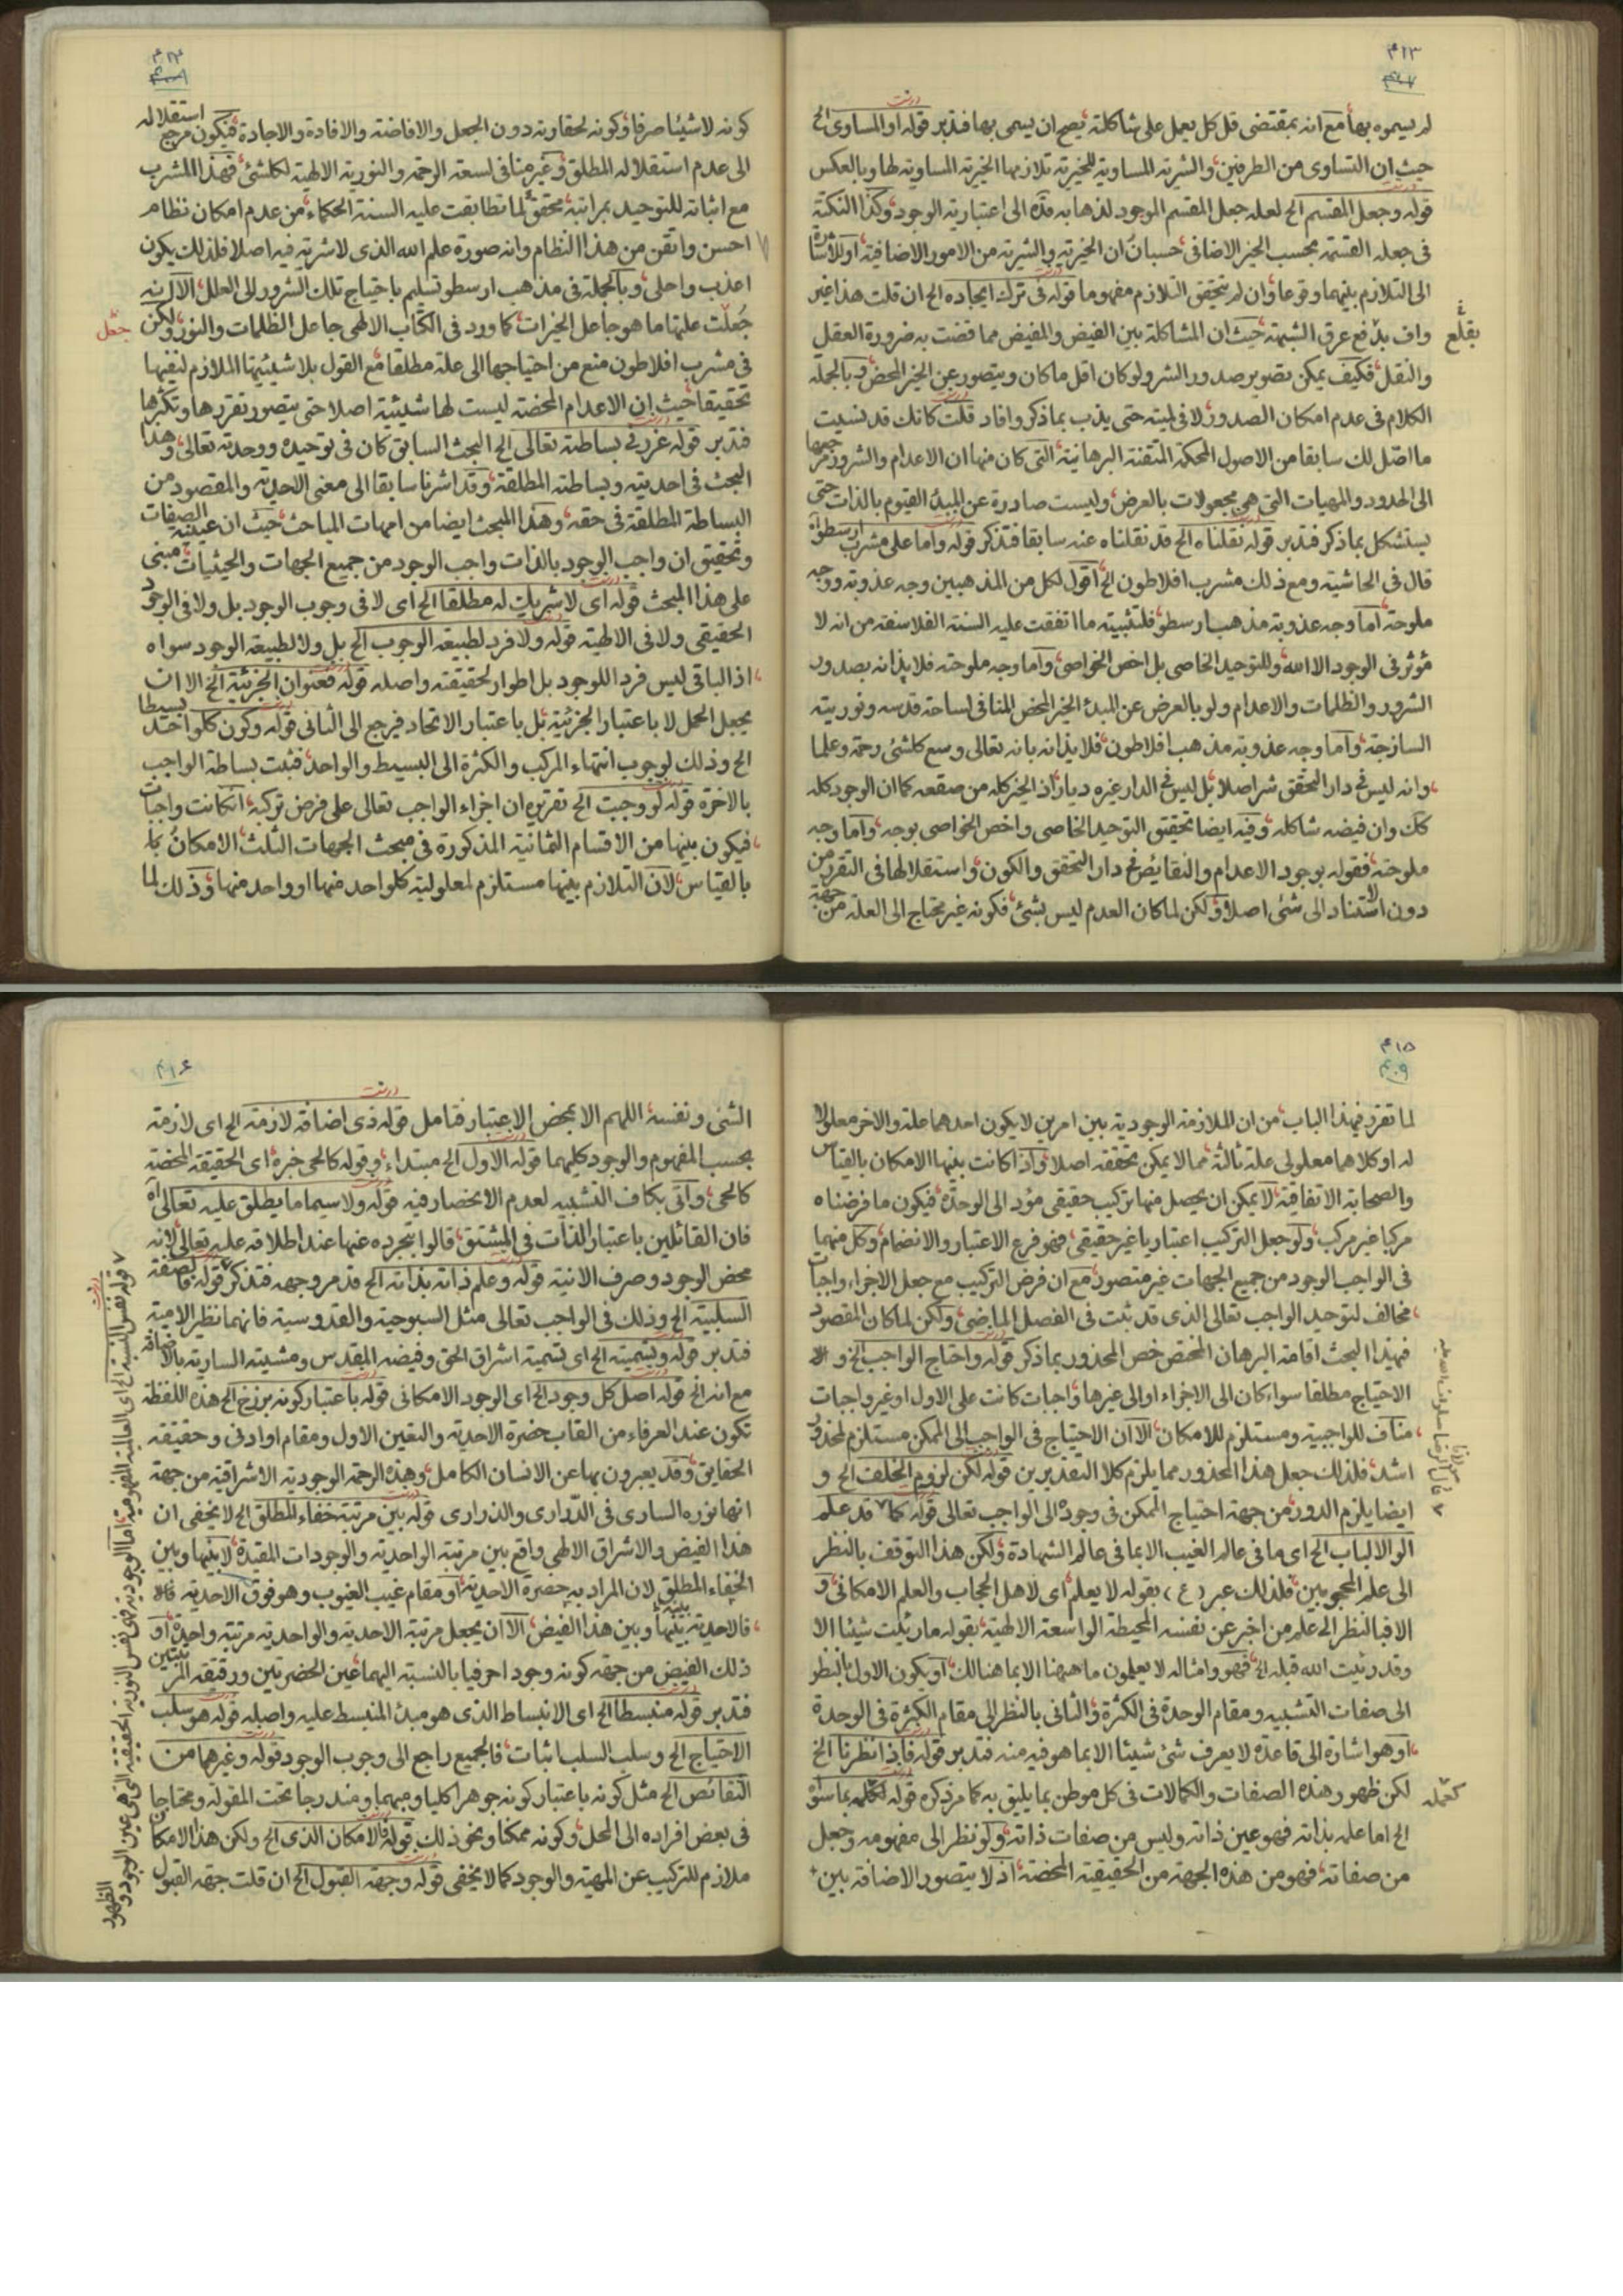 ٤١٣
لم يسموه بها مع انه بمقتضى قل كل يعمل على شاكلته يصح ان يسمى بها فتدبر قوله او المساوى الخ
حيث ان التساوى من الطرفين والشرية المساوية للخيرية تلازمها الخيرية المساوية لها وبالعكس
قوله وجعل المقسم الخ لعله جعل المقسم الموجود لذهابه قده الى اعتبارية الوجود وكذا النكتة
فى جعله القسمة بحسب الخير الاضافى حسبان ان الخيرية والشرية من الامور الاضافية او للاشارة
الى التلازم بينهما وقوعا وان لم يتحقق التلازم مفهوما قوله فى ترك ايجاده الخ ان قلت هذا غير
واف بدفع عرق الشبهة حيث ان المشاكلة بين الفيض والمفيض مما قضت به ضرورة العقل
بقلع
والنقل فكيف يمكن تصوير صدور الشر ولو كان اقل ما كان ويتصور عن الخير المحض وبالجملة
الكلام فى عدم امكان الصدور لا فى لميته حتى يذب بما ذكر وافاد قلت كانك قد نسيت
ما اصل لك سابقا من الاصول المحكمة المتقنة البرهانية التى كان منها ان الاعدام والشرور مرجعها
الى الحدود والمهيات التى هى مجعولات بالعرض وليست صادرة عن المبدء القيوم بالذات حتى
يستشكل بما ذكر فتدبر قوله نقلناه الخ قد نقلناه عنه سابقا فتذكر قوله واما على مشرب ارسطو اه
قال فى الحاشية ومع ذلك مشرب افلاطون الخ اقول لكل من المذهبين وجه عذوبة ووجه
ملوحة اما وجه عذوبة مذهب ارسطو فلتثبيته ما اتفقت عليه السنة الفلاسفة من انه لا
مؤثر فى الوجود الا الله وللتوحيد الخاصى بل اخص الخواصى واما وجه ملوحته فلايذانه بصدور
الشرور والظلمات والاعدام ولو بالعرض عن المبدء الخير المحض المنافى لساحة قدسه ونوريته
الساذجة واما وجه عذوبة مذهب افلاطون فلايذانه بانه تعالى وسع كلشئ رحمة وعلما
وانه ليس فى دار التحقق شر اصلا بل ليس فى الدار غيره ديار اذ الخير كله من صقعه كما ان الوجود كله
كك وان فيضه شاكله وفيه ايضا تحقق التوحيد الخاصى واخص الخواصى بوجه واما وجه
ملوحته فقوله بوجود الاعدام والنقايص فى دار التحقق والكون واستقلالها فى التقرر من
دون استناد الى شئ اصلا ولكن لما كان العدم ليس بشئ فكونه غير محتاج الى العلة من جهة
٤١٤
كونه لا شيئا صرفا وكونه لحقارته دون الجعل والافاضة والافادة والاجادة فيكون مرجع استقلاله
الى عدم استقلاله المطلق وغير منافى لسعة الرحمة والنورية الالهية لكلشئ فهذا المشرب
مع اثباته للتوحيد بمراتبه محقق لما تطابقت عليه السنة الحكماء من عدم امكان نظام
احسن واتقن من هذا النظام وانه صورة علم الله الذى لا شرية فيه اصلا فلذلك يكون
اعذب واحلى وبالجملة فى مذهب ارسطو تسليم باحتياج تلك الشرور الى العلل الا انه
جعلت علتها ما هو جاعل الخيرات كما ورد فى الكتاب الالهى جاعل الظلمات والنور ولكن
جعل
فى مشرب افلاطون منع من احتياجها الى علة مطلقا مع القول بلا شيئيتها الملازم لنفيها
تحقيقا حيث ان الاعدام المحضة ليست لها شيئية اصلا حتى يتصور تقررها وتكثرها
فتدبر قوله غرر فى بساطته تعالى الخ البحث السابق كان فى توحيده ووحدته تعالى وهذا
البحث فى احديته وبساطته المطلقة وقد اشرنا سابقا الى معنى الاحدية والمقصود من
البساطة المطلقة فى حقه وهذا المبحث ايضا من امهات المباحث حيث ان عينية الصفات
وتحقيق ان واجب الوجود بالذات واجب الوجود من جميع الجهات والحيثيات مبنى
على هذا المبحث قوله اى لا شريك له مطلقا الخ اى لا فى وجوب الوجود بل ولا فى الوجود
الحقيقى ولا فى الالهية قوله ولا فرد لطبيعة الوجوب الخ بل ولا لطبيعة الوجود سواه
اذ الباقى ليس فردا للوجود بل اطوار لحقيقته واصله قوله فعنوان الجزئية الخ الا ان
يجعل الحمل لا باعتبار الجزئية بل باعتبار الاتحاد فيرجع الى الثانى قوله وكون كلواحد بسيطا
الخ وذلك لوجوب انتهاء المركب والكثرة الى البسيط والواحد فثبت بساطة الواجب
بالاخرة قوله لو وجبت الخ تقريره ان اجزاء الواجب تعالى على فرض تركبه ان كانت واجبات
فيكون بينها من الاقسام الثمانية المذكورة فى مبحث الجهات الثلث الامكان با
بالقياس لان التلازم بينها مستلزم لمعلولية كلواحد منها او واحد منها وذلك لما
٤١٥
٤٠٩
لما تقرر فى هذا الباب من ان الملازمة الوجودية بين امرين لا يكون احدهما علة والاخر معلولا
له او كلاهما معلولى علة ثالثة مما لا يمكن تحققه اصلا واذا كانت بينها الامكان بالقياس
والصحابة الاتفاقية لا يمكن ان يحصل منها تركيب حقيقى مؤد الى الوحدة فيكون ما فرضناه
مركبا غير مركب ولو جعل التركيب اعتباريا غير حقيقى فهو فرع الاعتبار والانضمام وكل منهما
فى الواجب الوجود من جميع الجهات غير متصور مع ان فرض التركيب مع جعل الاجزاء واجبات
مخالف لتوحيد الواجب تعالى الذى قد ثبت فى الفصل الماضى ولكن لما كان المقصود
فى هذا البحث اقامة البرهان المختص خص المحذور بما ذكر قوله واحتاج الواجب الخ و
الاحتياج مطلقا سواء كان الى الاجزاء او الى غيرها واجبات كانت على الاول او غير واجبات
مناف للواجبية ومستلزم للامكان الا ان الاحتياج فى الواجب الى الممكن مستلزم لمحذور
اشد فلذلك جعل هذا المحذور مما يلزم كلا التقديرين قوله لكن لزوم الخلف الخ و
ايضا يلزم الدور من جهة احتياج الممكن فى وجوده الى الواجب تعالى قوله كما قد علم
قال مولانا الرضا صلوات الله عليه
الوا الالباب الخ اى ما فى عالم الغيب الا بما فى عالم الشهادة ولكن هذا التوقف بالنظر
الى علم المحجوبين فلذلك عبر (ع) بقوله لا يعلم اى لاهل الحجاب والعلم الامكانى و
الا فبالنظر الى علم من اخبر عن نفسه المحيطة الواسعة الالهية بقوله ما رئيت شيئا الا
وقد رئيت الله قبله الخ فهو وامثاله لا يعلمون ما هيهنا الا بما هنالك او يكون الاول بالنظر
الى صفات التشبيه ومقام الوحدة فى الكثرة والثانى بالنظر الى مقام الكثرة فى الوحدة
او هو اشارة الى قاعدة لا يعرف شئ شيئا الا بما هو فيه منه فتدبر قوله فاذا نظرنا الخ
لكن ظهور هذه الصفات والكمالات فى كل موطن بما يليق به كما مر ذكره قوله بما سواه
كعلمه
الخ اما علمه بذاته فهو عين ذاته وليس من صفات ذاته ولو نظر الى مفهومه وجعل
من صفاته فهو من هذه الجهة من الحقيقية المحضة اذ لا يتصور الاضافة بين
٤١٦
الشئ ونفسه اللهم الا بمحض الاعتبار فتامل قوله ذى اضافة لازمة الخ اى لازمة
بحسب المفهوم والوجود كليهما قوله الاول الخ مبتداء وقوله كالحى خبره اى الحقيقة المحضة
كالحى واتى بكاف التشبيه لعدم الانحصار فيه قوله ولا سيما ما يطلق عليه تعالى اه
فان القائلين باعتبار الذات فى المشتق قالوا بتجرده عنها عند اطلاقه عليه تعالى لانه
محض الوجود وصرف الانية قوله وعلم ذاته بذاته الخ قد مر وجهه فتذكر قوله بالصفة
السلبية الخ وذلك فى الواجب تعالى مثل السبوحية والقدوسية فانهما نظير الامية
فتدبر قوله وتسميته الخ اى تسمية اشراق الحق وفيضه المقدس ومشيته السارية بالاضافة
مع انه الخ قوله اصل كل وجود الخ اى الوجود الامكانى قوله باعتبار كونه برزخ الخ هذه اللفظة
تكون عند العرفاء من القاب حضرة الاحدية والتعين الاول ومقام او ادنى وحقيقة
الحقايق وقد يعبرون بها عن الانسان الكامل وهذه الرحمة الوجودية الاشراقية من جهة
انها نوره السارى فى الدرارى والذرارى قوله بين مرتبة خفاء المطلق الخ لا يخفى ان
هذا الفيض والاشراق الالهى واقع بين مرتبة الواحدية والوجودات المقيدة لا بينها وبين
الخفاء المطلق لان المراد به حضرة الاحدية او مقام غيب الغيوب وهو فوق الاحدية
فالاحدية بينه وبين هذا الفيض الا ان يجعل مرتبة الاحدية والواحدية مرتبة واحدة او
ذلك الفيض من جهة كونه وجودا حرفيا بالنسبة اليهما عين الحضرتين ورقيقة المرتبتين
فتدبر قوله منبسطا الخ اى الانبساط الذى هو مبدء المنبسط عليه واصله قوله هو سلب
الاحتياج الخ وسلب السلب اثبات فالجميع راجع الى وجوب الوجود قوله وغيرهما من
النقائص الخ مثل كونه باعتبار كونه جوهرا كليا ومبهما ومندرجا تحت المقولة ومحتاجا
فى بعض افراده الى المحل وكونه ممكنا ونحو ذلك قوله فالامكان الذى الخ ولكن هذا الامكان
ملازم للتركيب عن المهية والوجود كما لا يخفى قوله وجهة القبول الخ ان قلت جهة القبول
قوله نفس النسبة الخ اى العالمية المفهومية اما الوجودية فهى نفس النورية الحقيقية التى هى عين الوجود والظهور